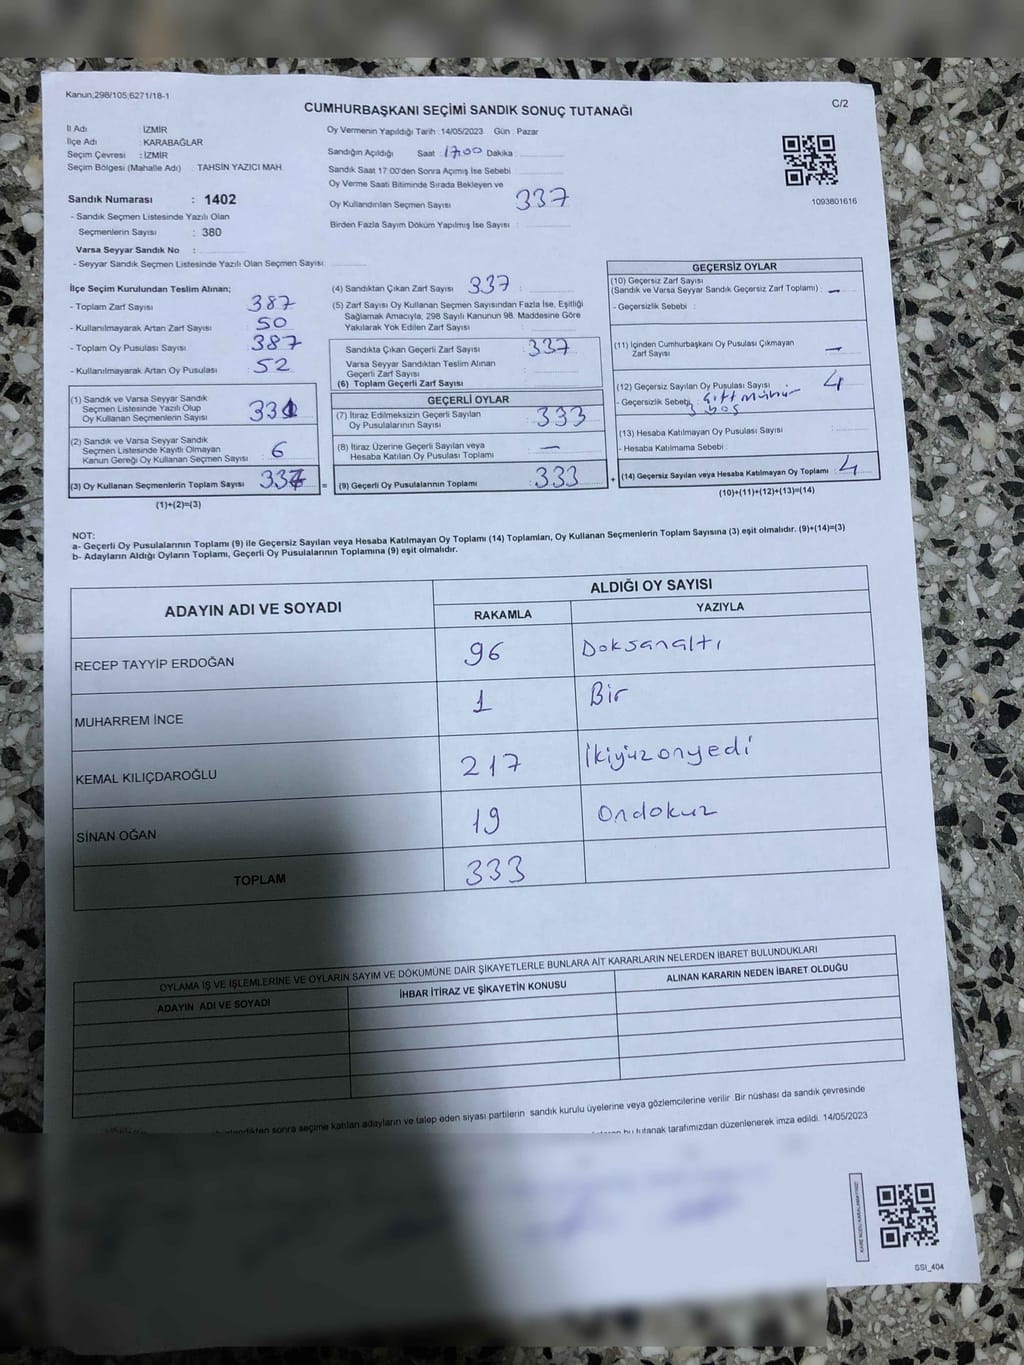 Kanun,298/105;6271/18-1
CUMHURBAŞKANI SEÇİMİ SANDIK SONUÇ TUTANAĞI
C/2
İl Adı : İZMİR
İlçe Adı : KARABAĞLAR
Seçim Çevresi : İZMİR
Seçim Bölgesi (Mahalle Adı) : TAHSİN YAZICI MAH.
Oy Vermenin Yapıldığı Tarih :14/05/2023 Gün : Pazar
Sandığın Açıldığı Saat : 17:00 Dakika :
Sandık Saat 17:00'den Sonra Açımış İse Sebebi
Oy Verme Saati Bitiminde Sırada Bekleyen ve
Oy Kullandırılan Seçmen Sayısı : 337
Birden Fazla Sayım Döküm Yapılmış İse Sayısı :
1093801616
Sandık Numarası : 1402
- Sandık Seçmen Listesinde Yazılı Olan
Seçmenlerin Sayısı : 380
Varsa Seyyar Sandık No :
- Seyyar Sandık Seçmen Listesinde Yazılı Olan Seçmen Sayısı:
İlçe Seçim Kurulundan Teslim Alınan;
- Toplam Zarf Sayısı : 387
- Kullanılmayarak Artan Zarf Sayısı : 50
- Toplam Oy Pusulası Sayısı : 387
- Kullanılmayarak Artan Oy Pusulası : 52
(1) Sandık ve Varsa Seyyar Sandık
Seçmen Listesinde Yazılı Olup
Oy Kullanan Seçmenlerin Sayısı : 331
(2) Sandık ve Varsa Seyyar Sandık
Seçmen Listesinde Kayıtlı Olmayan
Kanun Gereği Oy Kullanan Seçmen Sayısı : 6
(3) Oy Kullanan Seçmenlerin Toplam Sayısı : 337
(1)+(2)=(3)
(4) Sandıktan Çıkan Zarf Sayısı : 337
(5) Zarf Sayısı Oy Kullanan Seçmen Sayısından Fazla İse, Eşitliği
Sağlamak Amacıyla, 298 Sayılı Kanunun 98. Maddesine Göre
Yakılarak Yok Edilen Zarf Sayısı :
Sandıkta Çıkan Geçerli Zarf Sayısı : 337
Varsa Seyyar Sandıktan Teslim Alınan
Geçerli Zarf Sayısı :
(6) Toplam Geçerli Zarf Sayısı :
GEÇERLİ OYLAR
(7) İtiraz Edilmeksizin Geçerli Sayılan
Oy Pusulalarının Sayısı : 333
(8) İtiraz Üzerine Geçerli Sayılan veya
Hesaba Katılan Oy Pusulası Toplamı : —
= (9) Geçerli Oy Pusulalarının Toplamı : 333
GEÇERSİZ OYLAR
(10) Geçersiz Zarf Sayısı
(Sandık ve Varsa Seyyar Sandık Geçersiz Zarf Toplamı) : —
- Geçersizlik Sebebi :
(11) İçinden Cumhurbaşkanı Oy Pusulası Çıkmayan
Zarf Sayısı : —
(12) Geçersiz Sayılan Oy Pusulası Sayısı : 4
- Geçersizlik Sebebi : Çift mühür
3 boş
(13) Hesaba Katılmayan Oy Pusulası Sayısı :
- Hesaba Katılmama Sebebi :
+ (14) Geçersiz Sayılan veya Hesaba Katılmayan Oy Toplamı : 4
(10)+(11)+(12)+(13)=(14)
NOT:
a- Geçerli Oy Pusulalarının Toplamı (9) ile Geçersiz Sayılan veya Hesaba Katılmayan Oy Toplamı (14) Toplamları, Oy Kullanan Seçmenlerin Toplam Sayısına (3) eşit olmalıdır. (9)+(14)=(3)
b- Adayların Aldığı Oyların Toplamı, Geçerli Oy Pusulalarının Toplamına (9) eşit olmalıdır.
ADAYIN ADI VE SOYADI
ALDIĞI OY SAYISI
RAKAMLA YAZIYLA
RECEP TAYYİP ERDOĞAN 96 Doksanaltı
MUHARREM İNCE 1 Bir
KEMAL KILIÇDAROĞLU 217 İkiyüzonyedi
SİNAN OĞAN 19 Ondokuz
TOPLAM 333
OYLAMA İŞ VE İŞLEMLERİNE VE OYLARIN SAYIM VE DÖKÜMÜNE DAİR ŞİKAYETLERLE BUNLARA AİT KARARLARIN NELERDEN İBARET BULUNDUKLARI
ADAYIN ADI VE SOYADI İHBAR İTİRAZ VE ŞİKAYETİN KONUSU ALINAN KARARIN NEDEN İBARET OLDUĞU
sonra seçime katılan adayların ve talep eden siyasi partilerin sandık kurulu üyelerine veya gözlemcilerine verilir. Bir nüshası da sandık çevresinde
bu tutanak tarafımızdan düzenlenerek imza edildi. 14/05/2023
SSI_404